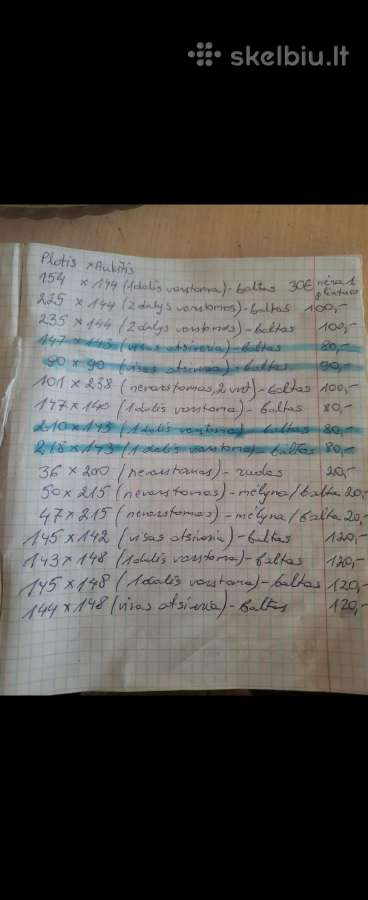 skelbiu.lt
Plotis x Aukštis
154 x 144 (1 dalis varstoma) - baltas 30€ nėra 1
225 x 144 (2 dalys varstomos) - baltas 100,-
235 x 144 (2 dalys varstomos) - baltas 100,-
147 x 143 (visas atsiveria) - baltas 80,-
90 x 90 (visas atsiveria) - baltas 90,-
101 x 238 (nevarstomas, 2 vnt) - baltas 100,-
147 x 140 (1 dalis varstoma) - baltas 80,-
210 x 143 (1 dalis varstoma) - baltas 80,-
218 x 143 (1 dalis varstoma) - baltas 80,-
36 x 200 (nevarstomas) - rudas 20,-
50 x 215 (nevarstomas) - mėlyna/balta 20,-
47 x 215 (nevarstomas) - mėlyna/balta 20,-
145 x 142 (visas atsiveria) - baltas 120,-
143 x 148 (1 dalis varstoma) - baltas 120,-
145 x 148 (1 dalis varstoma) - baltas 120,-
144 x 148 (visas atsiveria) - baltas 120,-